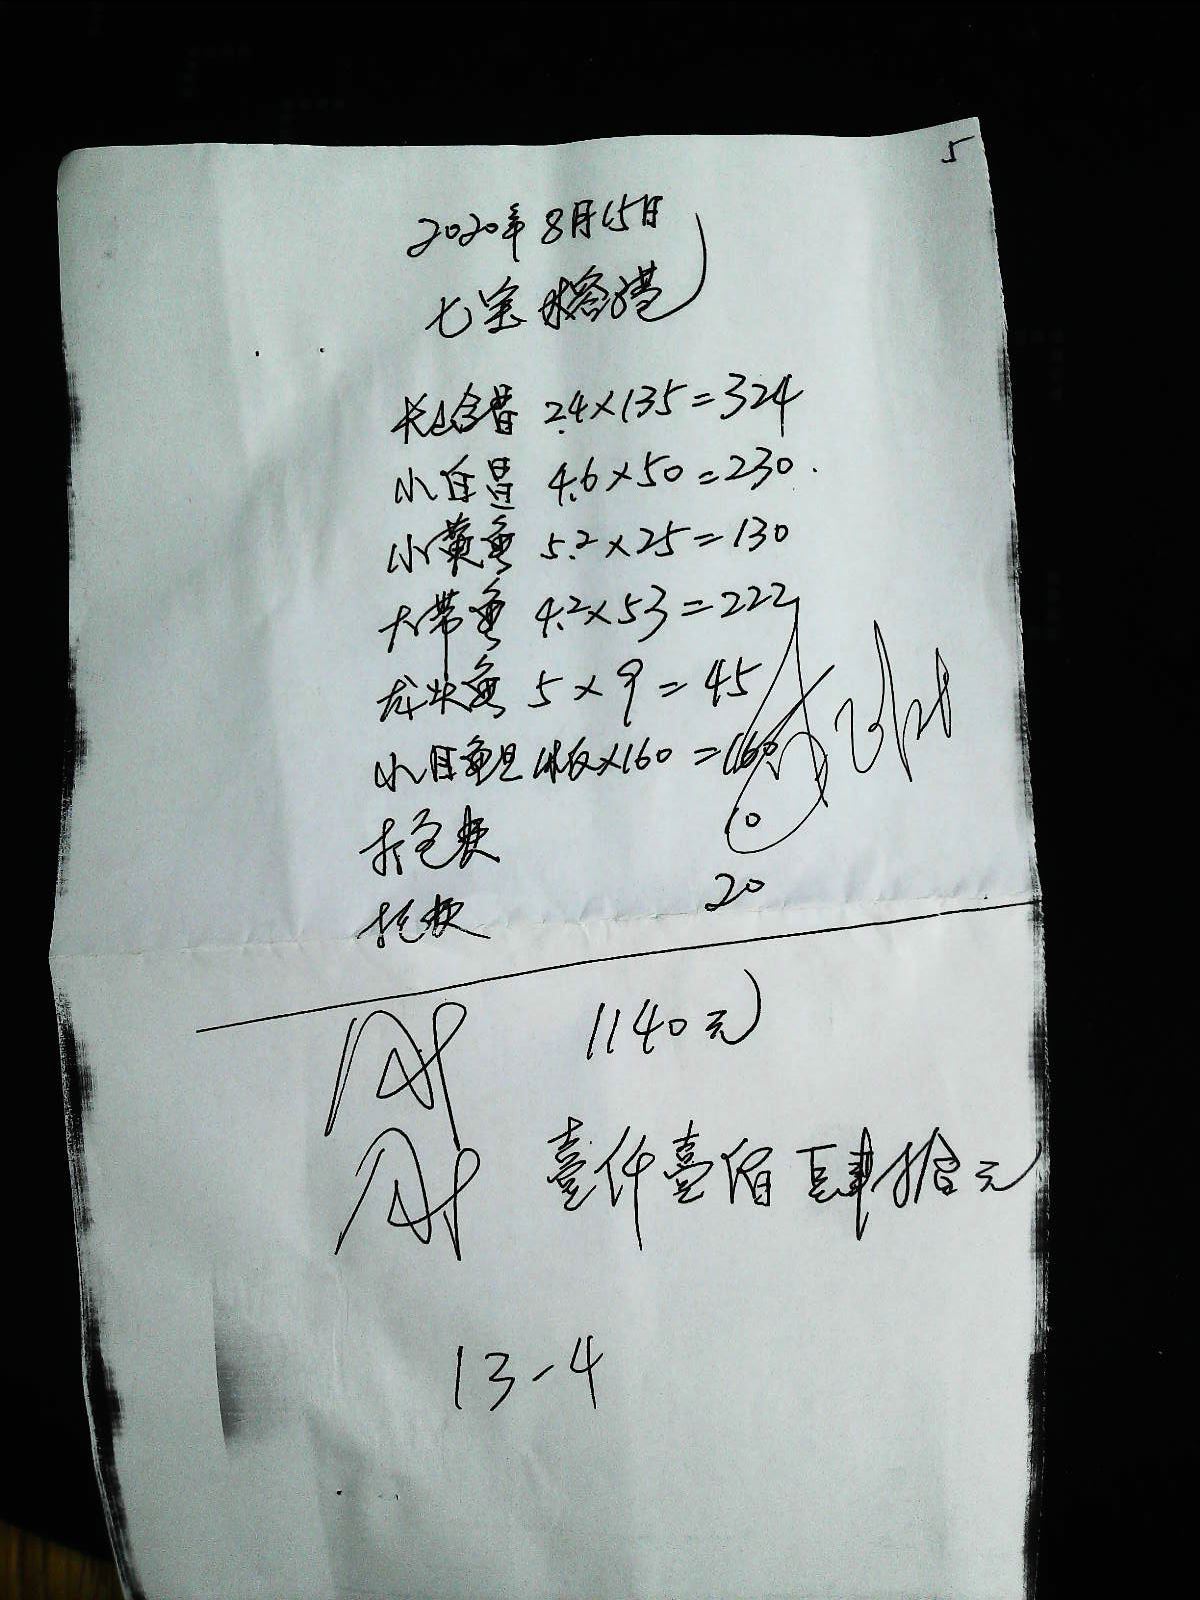 5
2020年8月15日
七宝
2.4×135=324
小白昌 4.6×50=230.
小黄鱼 5.2×25=130
大带鱼 4.2×53=222
龙头鱼 5×9=45
小 1板×160=160
打包费 10
20
1140元
壹仟壹佰肆拾元
13-4